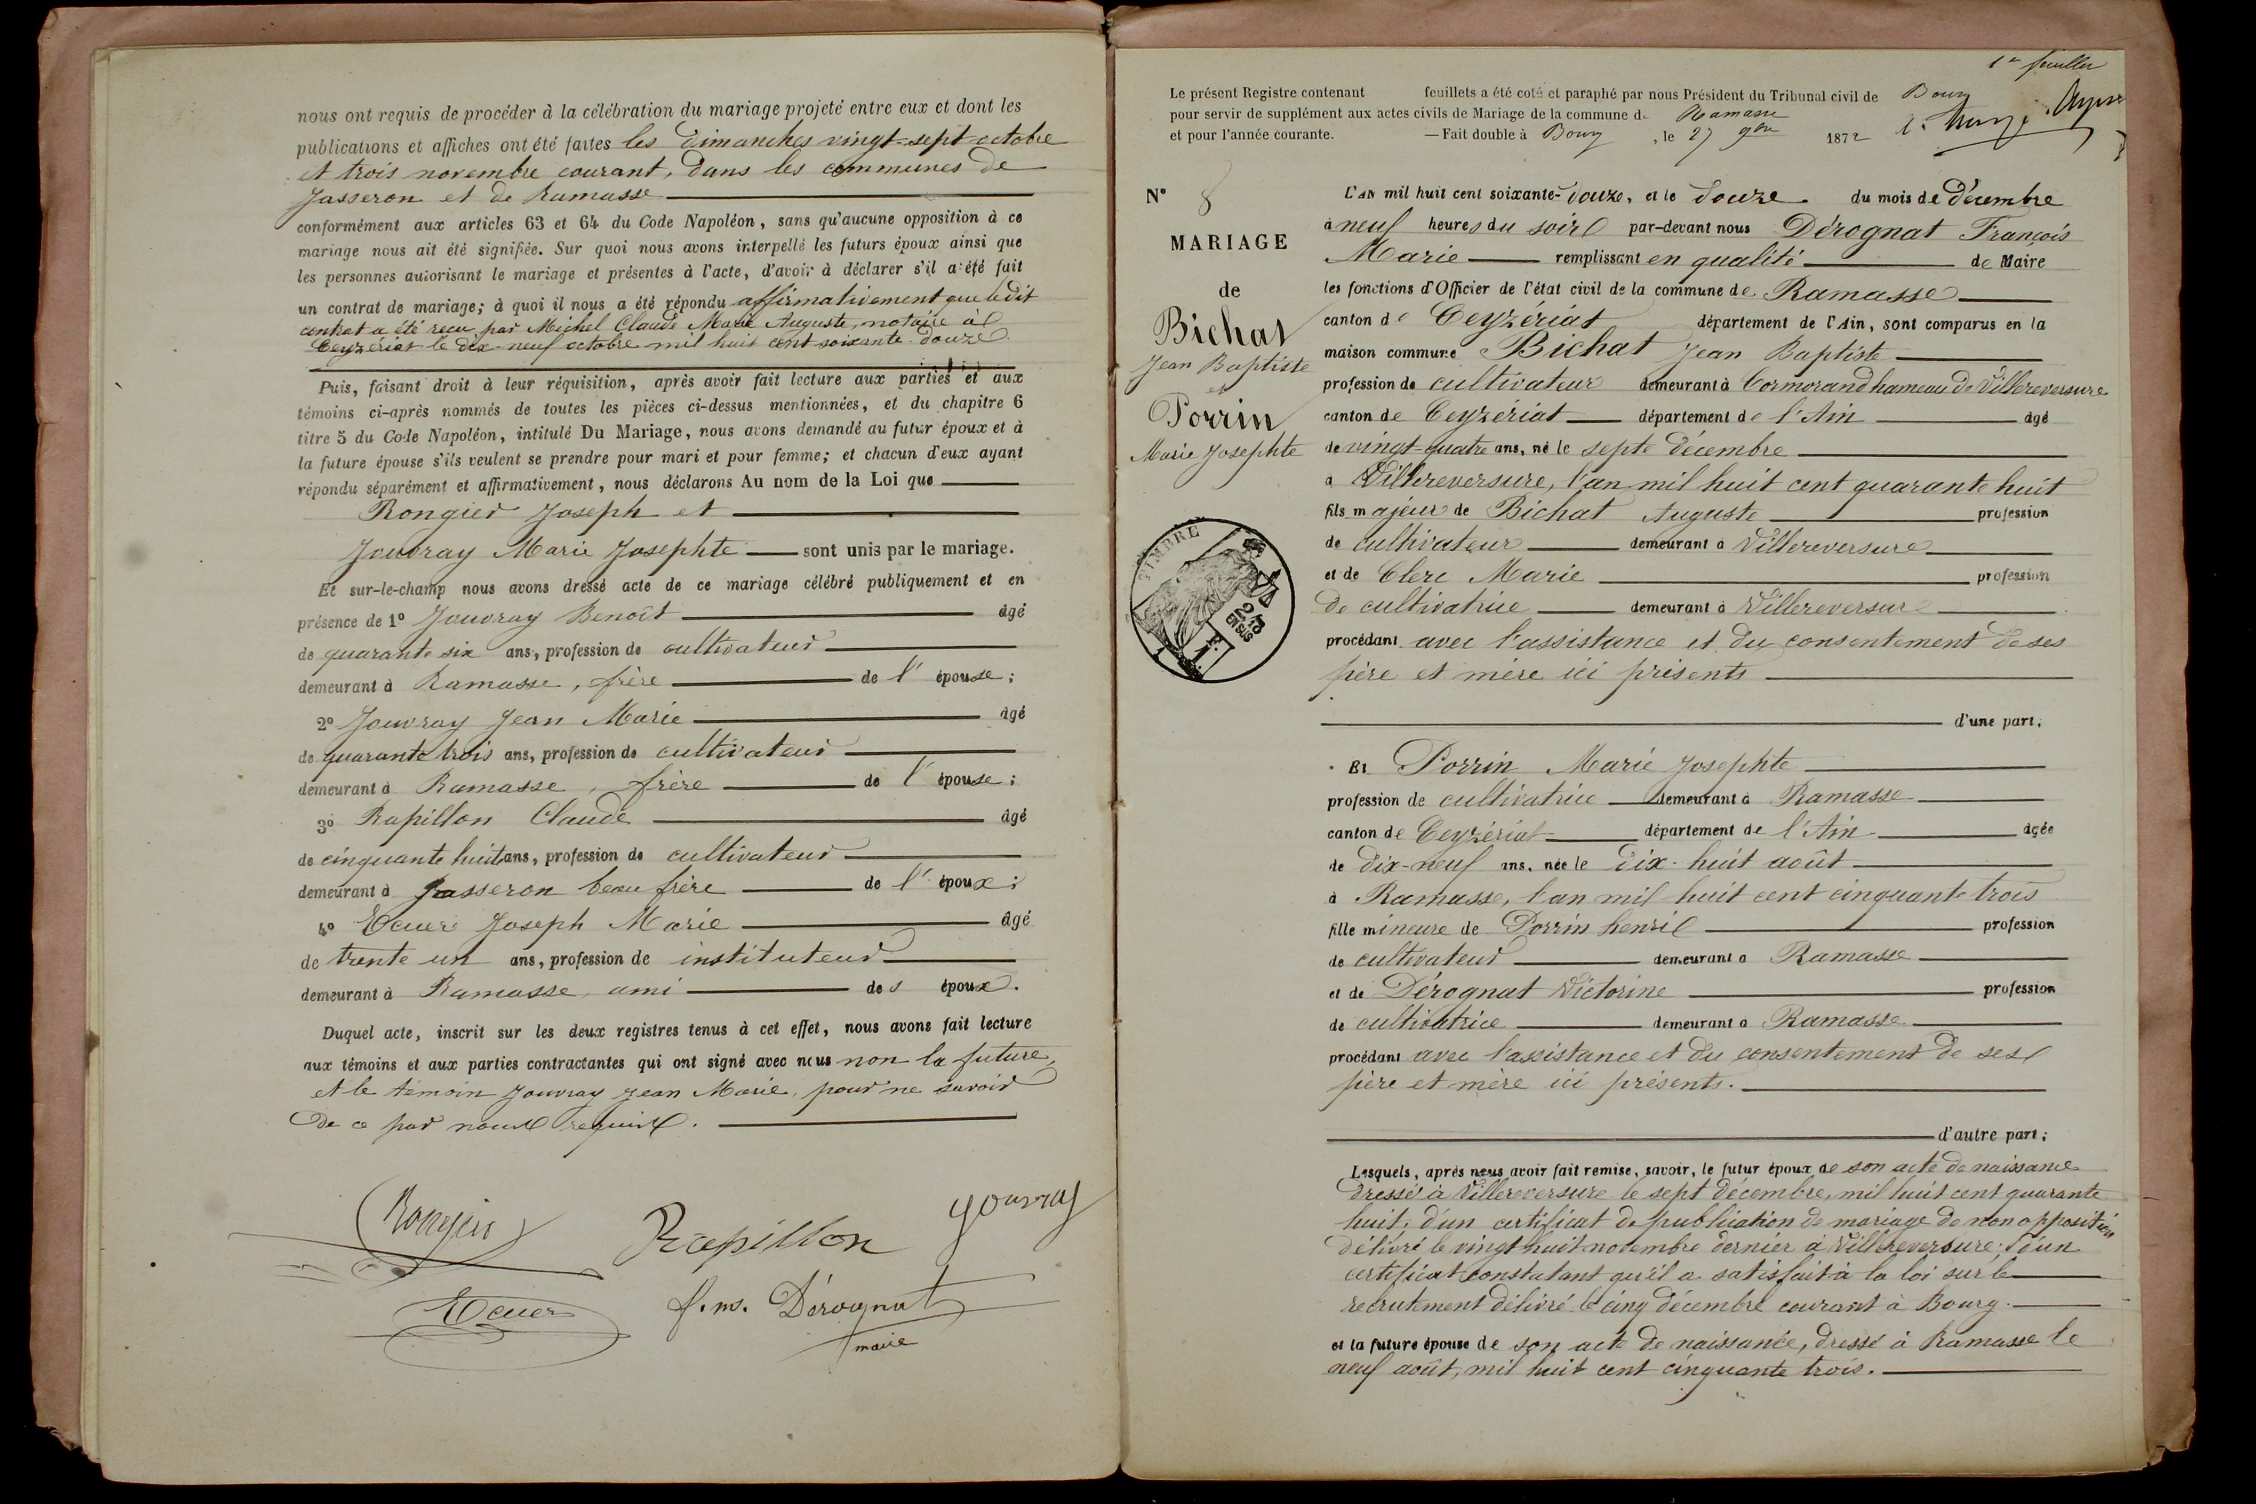 nous ont requis de procéder à la célébration du mariage projeté entre eux et dont les
publications et affiches ont été faites les Dimanches vingt-sept octobre
et trois novembre courant, dans les communes de
Jasseron et de Ramasse
conformément aux articles 63 et 64 du Code Napoléon, sans qu'aucune opposition à ce
mariage nous ait été signifiée. Sur quoi nous avons interpellé les futurs époux ainsi que
les personnes autorisant le mariage et présentes à l'acte, d'avoir à déclarer s'il a été fait
un contrat de mariage; à quoi il nous a été répondu affirmativement que ledit
contrat a été reçu par Michel Claude Marie Auguste, notaire à
Ceyzériat le dix-neuf octobre mil huit cent soixante douze.
Puis, faisant droit à leur réquisition, après avoir fait lecture aux parties et aux
témoins ci-après nommés de toutes les pièces ci-dessus mentionnées, et du chapitre 6
titre 5 du Code Napoléon, intitulé Du Mariage, nous avons demandé au futur époux et à
la future épouse s'ils veulent se prendre pour mari et pour femme; et chacun d'eux ayant
répondu séparément et affirmativement, nous déclarons Au nom de la Loi que
Rongier Joseph et
Jouvray Marie Josephte sont unis par le mariage.
Et sur-le-champ nous avons dressé acte de ce mariage célébré publiquement et en
présence de 1º Jouvray Benoît âgé
de quarante six ans, profession de cultivateur
demeurant à Ramasse, frère de l'épouse;
2º Jouvray Jean Marie âgé
de quarante trois ans, profession de cultivateur
demeurant à Ramasse, frère de l'épouse;
3º Rapillon Claude âgé
de cinquante huit ans, profession de cultivateur
demeurant à Jasseron beau frère de l'époux;
4º Ecuer Joseph Marie âgé
de trente un ans, profession de instituteur
demeurant à Ramasse, ami des époux.
Duquel acte, inscrit sur les deux registres tenus à cet effet, nous avons fait lecture
aux témoins et aux parties contractantes qui ont signé avec nous non la future,
et le témoin Jouvray Jean Marie, pour ne savoir
de ce par nous requis.
Rongier Rapillon Jouvray
Ecuer f. m. Dérognat
maire
1er feuillet
Le présent Registre contenant feuillets a été coté et paraphé par nous Président du Tribunal civil de Bourg
pour servir de supplément aux actes civils de Mariage de la commune de Ramasse
et pour l'année courante. — Fait double à Bourg, le 27 9bre 1872
Nº 8
MARIAGE
de
Bichat
Jean Baptiste
et
Porrin
Marie Josephte
TIMBRE
2/10
EN SUS
L'AN mil huit cent soixante-douze, et le douze du mois de décembre
à neuf heures du soir par-devant nous Dérognat François
Marie remplissant en qualité de Maire
les fonctions d'Officier de l'état civil de la commune de Ramasse
canton de Ceyzériat département de l'Ain, sont comparus en la
maison commune Bichat Jean Baptiste
profession de cultivateur demeurant à Cormorand hameau de Villereversure
canton de Ceyzériat département de l'Ain âgé
de vingt-quatre ans, né le sept décembre
à Villereversure, l'an mil huit cent quarante huit
fils majeur de Bichat Auguste profession
de cultivateur demeurant à Villereversure
et de Clerc Marie profession
de cultivatrice demeurant à Villereversure
procédant avec l'assistance et du consentement de ses
père et mère ici présents
d'une part;
Et Porrin Marie Josephte
profession de cultivatrice demeurant à Ramasse
canton de Ceyzériat département de l'Ain âgée
de dix-neuf ans, née le dix-huit août
à Ramasse, l'an mil huit cent cinquante trois
fille mineure de Porrin henri profession
de cultivateur demeurant à Ramasse
et de Dérognat Victorine profession
de cultivatrice demeurant à Ramasse
procédant avec l'assistance et du consentement de ses
père et mère ici présents.
d'autre part;
Lesquels, après nous avoir fait remise, savoir, le futur époux de son acte de naissance
dressé à Villereversure le sept décembre, mil huit cent quarante
huit; d'un certificat de publication de mariage de non opposition
délivré le vingt huit novembre dernier à Villereversure; d'un
certificat constatant qu'il a satisfait à la loi sur le
recrutement délivré le cinq décembre courant à Bourg.
et la future épouse de son acte de naissance, dressé à Ramasse le
neuf août, mil huit cent cinquante trois.